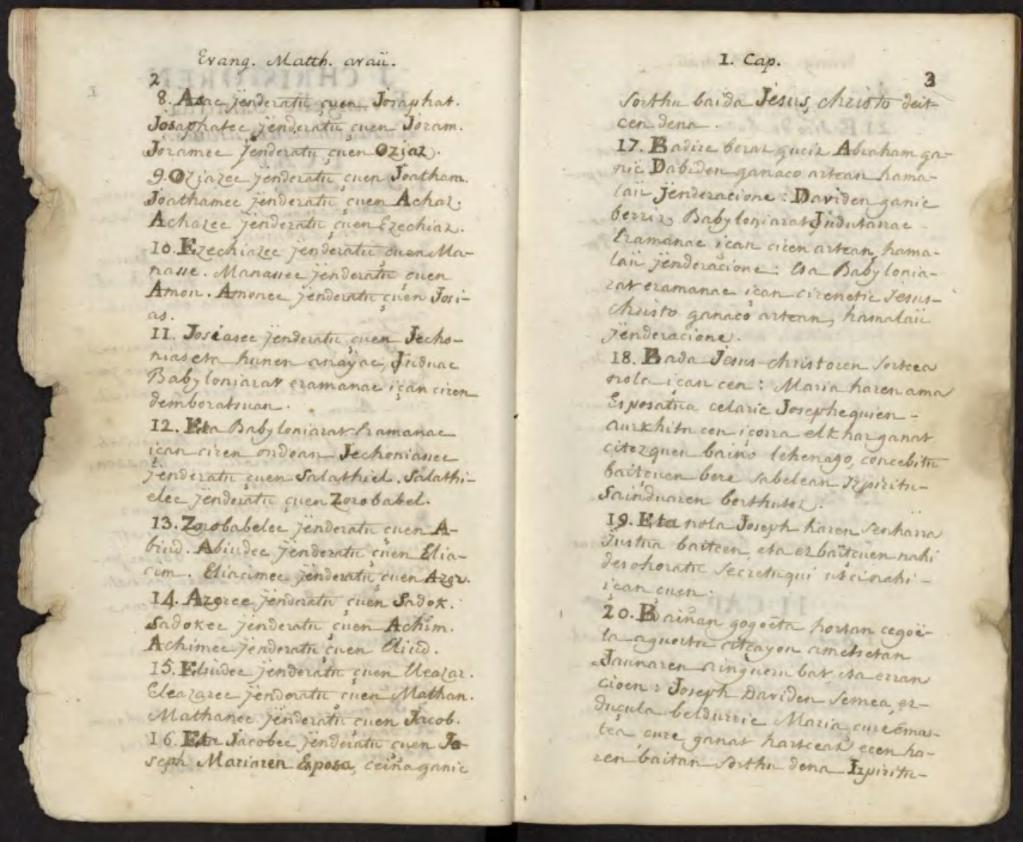 Evang. Matth. araü.
2
8. Asac jenderatü çuen Josaphat.
Josaphatec jenderatü çuen Joram.
Joramec jenderatü çuen Ozjaz.
9. Ozjazec jenderatü çuen Joatham.
Joathamec jenderatü çuen Achaz.
Achazec jenderatü çuen Ezechiaz.
10. Ezechiazec jenderatü çuen Ma-
nasse. Manassec jenderatü çuen
Amon. Amonec jenderatü çuen Josi-
as.
11. Josiasec jenderatü çuen Jecho-
nias eta hunen anayac, Juduac
Babyloniarat eramanac içan ciren
demboratsuan.
12. Eta Babyloniarat Eramanac
içan ciren ondoan Jechoniasec
jenderatü çuen Salathiel. Salathi-
elec jenderatü çuen Zorobabel.
13. Zorobabelec jenderatü çuen A-
biud. Abiudec jenderatü çuen Elia-
cim. Eliacimec jenderatü çuen Azor.
14. Azorec jenderatü çuen Sadok.
Sadokec jenderatü çuen Achim.
Achimec jenderatü çuen Eliud.
15. Eliudec jenderatü çuen Eleazar.
Eleazarec jenderatü çuen Mathan.
Mathanec jenderatü çuen Jacob.
16. Eta Jacobec jenderatü çuen Jo-
seph Mariaren Esposa, ceiña ganic
I. Cap.
3
Sorthu baida Jesus, christo deit-
cen dena.
17. Badire beraz guciz Abraham ga-
nic Dabiden ganaco artean hama-
laü jenderacione: Daviden ganic
berriz Babyloniarat Judutarrac
Eramanac içan ciren artean, hama-
laü jenderacione: Eta Babylonia-
rat eramanac içan cirenetic Jesus-
christo ganaco artean, hamalaü
jenderacione.
18. Bada Jesus christoren Sortcea
nola içan cen: Maria haren ama
Esposatua celaric Josephequien
aurkhitu cen içorra elkharganat
citezquen baino lehenago, concebitu
baitcuen bere sabelean Izpiritu-
Sainduaren berthutez.
19. Eta nola Joseph haren Senharra
Justua baitcen, eta ezbaitcuen nahi
desohoratu Secretuqui utci nahi-
içan çuen.
20. Bainan gogoeta hortan cegoë-
la aguertu citçayon ametsetan
Jaunaren aingueru bat eta erran
cioen: Joseph Daviden Semea, ez-
duçula beldurric Maria çure Emaz-
tea çure ganat hartceaz ecen ha-
ren baitan Sorthu dena Izpiritu-